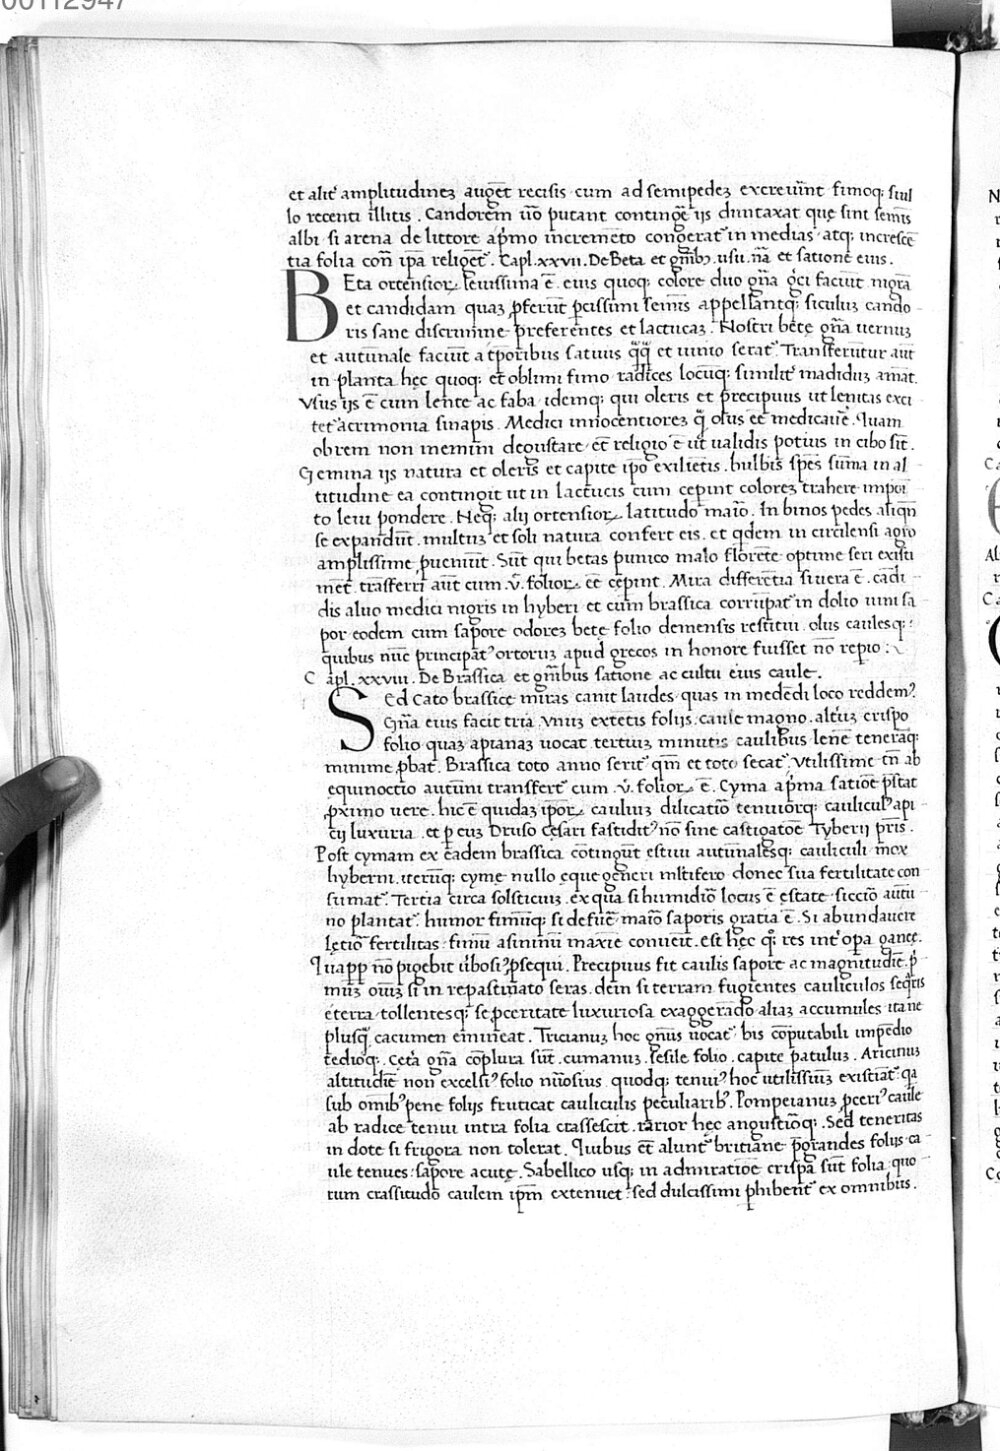 00112947
et alit̛ amplitudineʒ auget̄ recisis cum ad semipedeʒ excreuīnt fimoqꝫ siul
lo recenti illitis. Candorem ūo putant continge̅ ijs duntaxat que̜ sint semis
albi si arena de littore ap̛mo incremēto congerat̛ in medias atqꝫ incresce̅
tia folia con̄ ipā religet̛. Capl. xxvii. De Beta et gn̄ibꝰ. usu. nā et satione eius.
BEta ortensioꝝ leuissima ē. eius quoqꝫ colore duo gn̄a gͥci faciūt nigrā
et candidam quaʒ p̱ferūt ꝑcissimi semis appellantqꝫ siculuʒ cando
ris sane discrimine preferentes et lactucaʒ. Nostri bete̜ gn̄a uernuʒ
et autūnale faciūt a tꝑoribus satuus qͣqͣ et iunio serat̛. Transferuntur aūt
in planta he̜c quoqꝫ et oblini fimo radices locūqꝫ similit̛ madiduʒ amāt.
Vsus ijs ē cum lente ac faba idemqꝫ qui oleris et precipuus ut lenitas exci
tet̛ acrimonia sinapis. Medici innocentioreʒ qͣ olus eē medicauē. Quam
obrem non memini degustare et religio ē ut ualidis potius in cibo sit̄.
Gemina ijs natura et oleris et capite ip̄o exilietis. bulbis sp̄es sūma in al
titudine ea contingit ut in lactucis cum cepint coloreʒ trahere impoi
to leui pondere. Neqꝫ alij ortensioꝝ latitudo maīo. In binos pedes aliqn̄
se expandūt. multuʒ et soli natura confert eis. et qͥdem in circensi agro
amplissime ꝓueniūt. Sūt qui betas punico malo florēte optime seri existi
mēt. trāsferri aūt cum .v̄. folioꝝ eē cepint. Mira differētia si uera ē. cādi
dis aluo medici nigris in hyberi et cum brassica corrūpat̛ in dolio uini sa
por eodem cum sapore odoreʒ bete̜ folio demensis restitui. olus caulesqꝫ
quibus nūc principatꝰ ortoruʒ apud grecos in honore fuisset nō repio:
Capl. xxviii. De Brassica et gn̄ibus satione ac cultu eius caule.
Sed Cato brassice̜ miras canit laudes quas in medēdi loco reddemꝰ.
Gn̄a eius facit tria. vnuʒ extetis folijs. caule magno. altēuʒ crispo
folio quaʒ apianaʒ uocat. tertiuʒ minutis caulibus lene teneraqꝫ
minime ꝓbat. Brassica toto anno serit̛ qm̄ et toto secat̛. Vtilissime tn̄ ab
equinoctio autūni transfert̛ cum .v̄. folioꝝ ē. Cyma ap̛ma satiōe p̄stat
ꝓximo uere. hic ē quidaʒ ip̄oꝝ cauliuʒ dilicatiō tenuiorqꝫ cauliculꝰ api
cij luxuria. et ꝑ euʒ Druso Ce̜sari fastiditꝰ nō sine castigatōe Tyberij pr̄is.
Post cymam ex eadem brassica cōtingūt estiui autūnalesqꝫ cauliculi mox
hyberni. iterūqꝫ cyme̜ nullo e̜que generi mltifero donec sua fertilitate con
sumat̛. Tertia circa solsticiuʒ. ex qua si humidiō locus ē e̜state siccio autū
no plantat̛. humor fimūqꝫ si defuē maiō saporis gratia ē. Si abundauere
le̜tio fertilitas. fimū asininū maxīe conueīt. est he̜c qͦqꝫ res int̛ opa gane̜e̜.
Quapp nō pigebit ūbosiꝰ ꝓsequi. Precipuus fit caulis sapore ac magnitudīe. p̛
muʒ oīuʒ si in repastinato seras. dein si terram fugientes cauliculos seqͣris
e terra tollentesqꝫ se ꝓceritate luxuriosa exaggerādo aliaʒ accumules ita ne
plusqͣ cacumen emineat. Tricianuʒ hoc gn̄us uocāt̛ bis cōputabili impēdio
tedioqꝫ. Cet̛a gn̄a cōplura sūt. cumanuʒ. sesile folio. capite patuluʒ. Aricinuʒ
altitudīe non excelsiꝰ folio nūosius quodqꝫ tenuiꝰ hoc utilissimuʒ existiāt̛ qͣ
sub omībꝰ pene folijs fruticat cauliculis peculiaribꝰ. Pompeianuʒ ꝓceriꝰ caule
ab radice tenui intra folia crassescit. rarior he̜c angustioqꝫ. Sed teneritas
in dote si frigora non tolerat. Quibus etī alunt̛ britiane p̄grandes folijs ca
ule tenues. sapore acute̜. Sabellico usqꝫ in admiratiōe crispa sūt folia quo
rum crassitudo caulem ip̄m extenuet. sed dulcissimi phibent̛ ex omnibus.